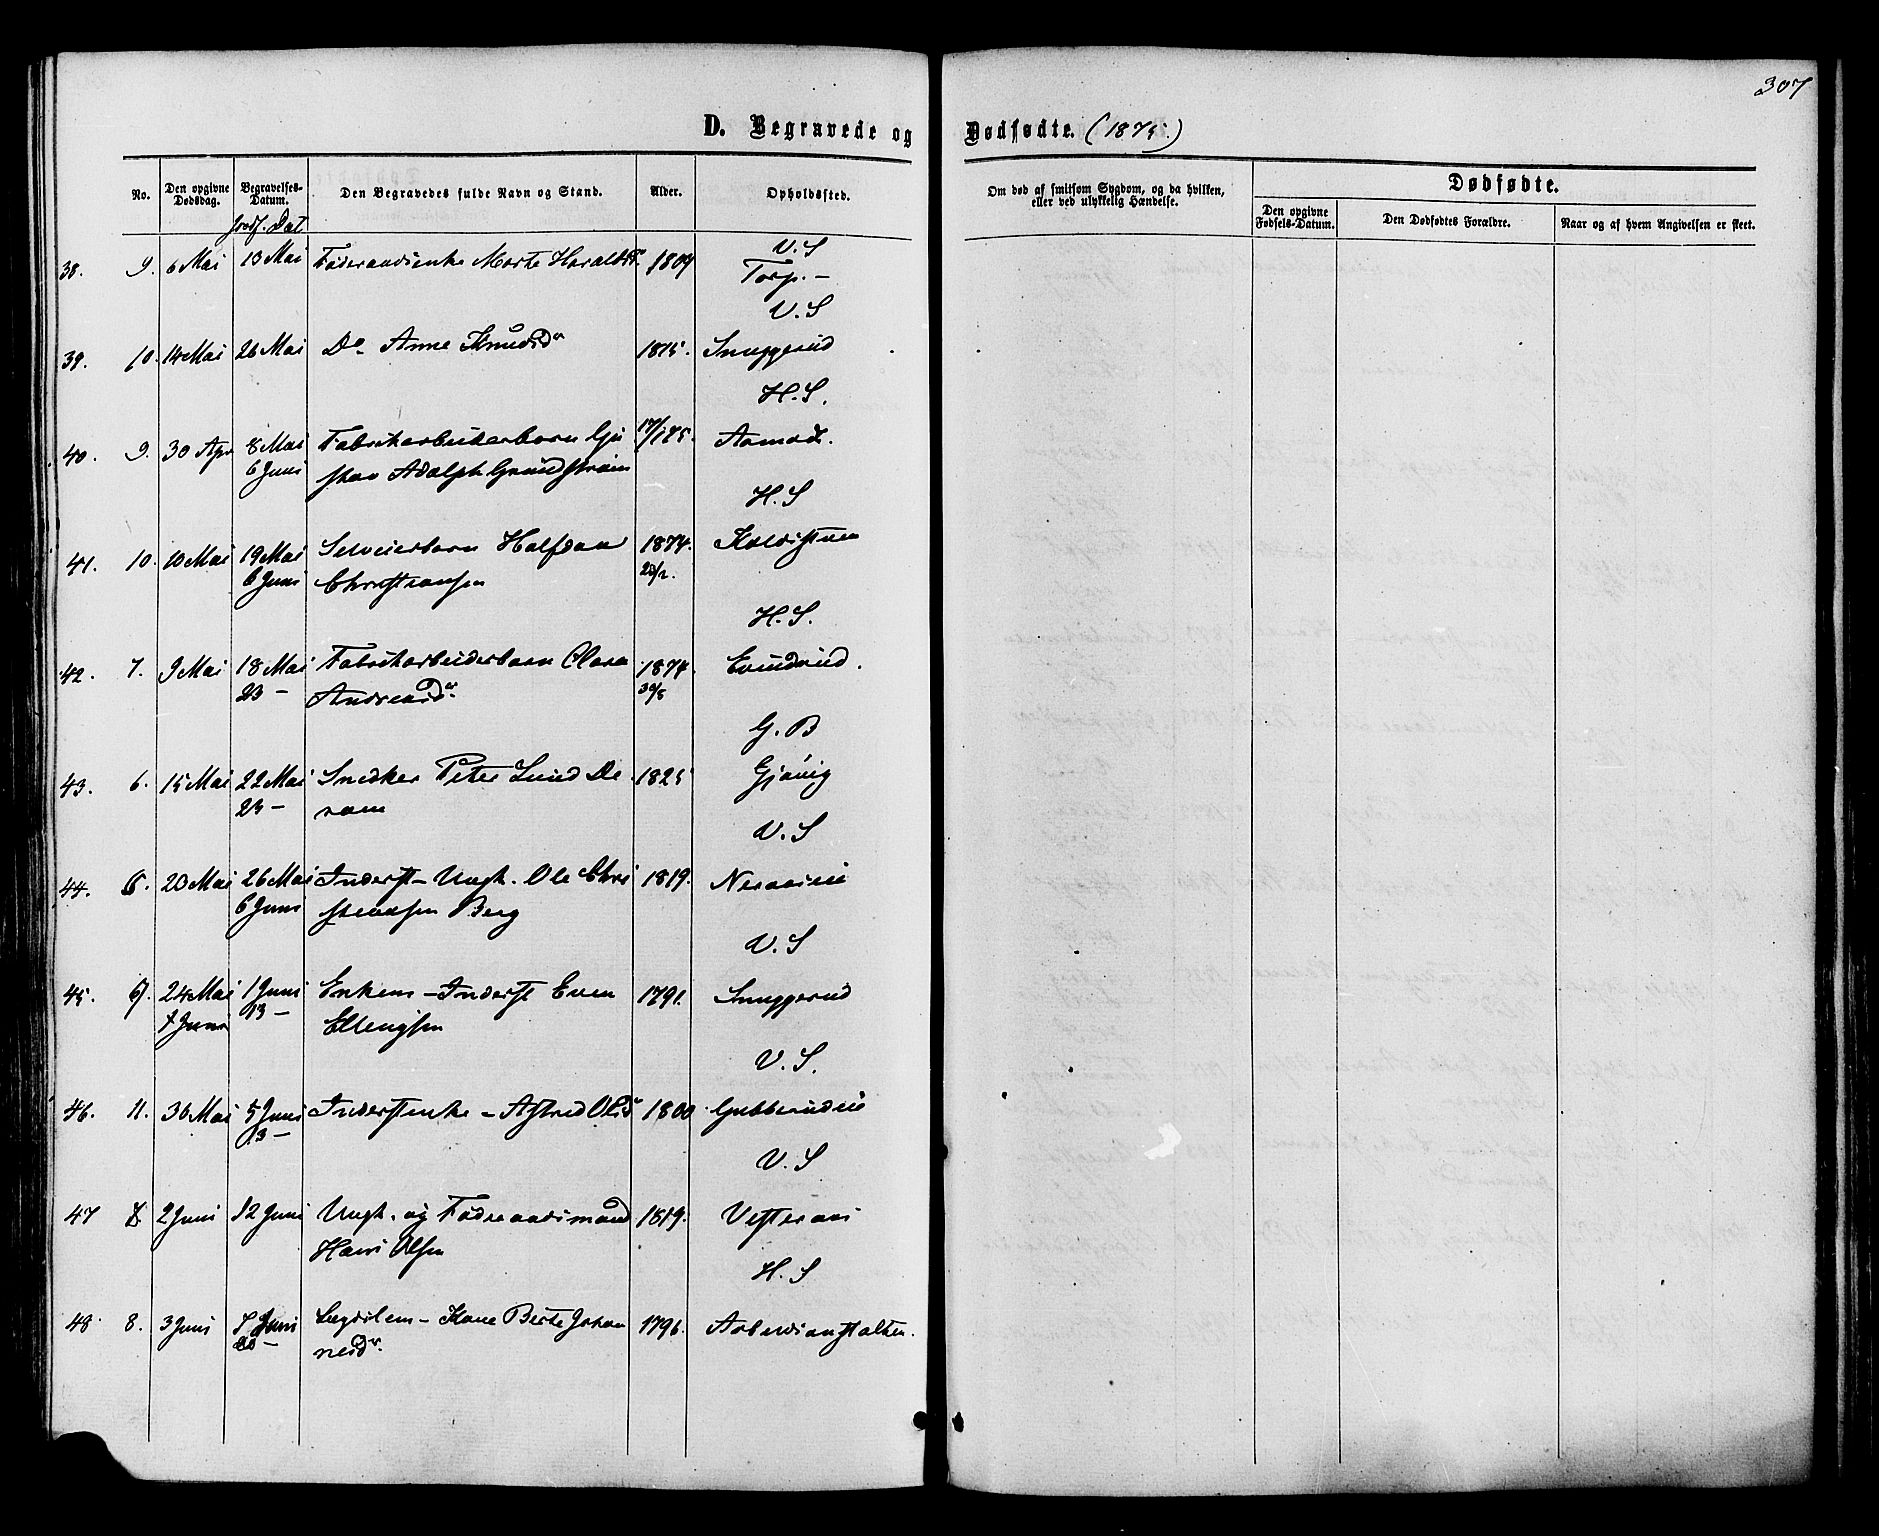 307
D. Begravede og Dødfødte. (1875.)
No.
Den opgivne Dødsdag.
Begravelses-Datum.
Jordf. Dat
Den Begravedes fulde Navn og Stand.
Alder.
Opholdssted.
Om død af smitsom Sygdom, og da hvilken,
eller ved ulykkelig Hændelse.
Dødfødte.
Den opgivne Fødsels-Datum.
Den Dødfødtes Forældre.
Naar og af hvem Angivelsen er skeet.
V. S
38. 9. 6 Mai 13 Mai Føderaadsenke Marte Haraldsdr 1809 Torp. –
V. S
39. 10. 14 Mai 26 Mai Do Anne Knudsdr 1815. Snuggerud
H. S.
40. 9. 30 Apr 8 Mai Fabrikarbeiderbarn Gu 17/1 75. Aamodt.
6 Juni stav Adolph Grundstrøm
H. S
41. 10. 10 Mai 19 Mai Selveierbarn Halfdan 1874. Koldstuen
6 Juni Christiansen
H. S.
42. 7. 9 Mai 18 Mai Fabrikarbeiderbarn Clara 1874. Evindrud.
23 – Andreasdr. 30/5
G. B
43. 6. 15 Mai 22 Mai Snedker Peter Lund De 1825 Gjøvig
23 – ram
V. S
44. 20 Mai 26 Mai Inderst – Ungk. Ole Chri 1819.
6 Juni stensen Berg
V. S
45. 24 Mai 1 Juni Enkem – Inderst Even 1791. Snuggerud
13 – Ellengsen
V. S.
46. 11. 30 Mai 5 Juni Inderstenke – Astrid Olsdr 1800 Gubberudeie
13 –
V. S
47 2 Juni 12 Juni Ungk. og Føderaadsmand 1819. Vesteraas
Hans Olsen
H. S
48 8. 3 Juni Juni Lægdslem – Kone Berte Johan 1796. Arbeidsanstalten.
nesdr.